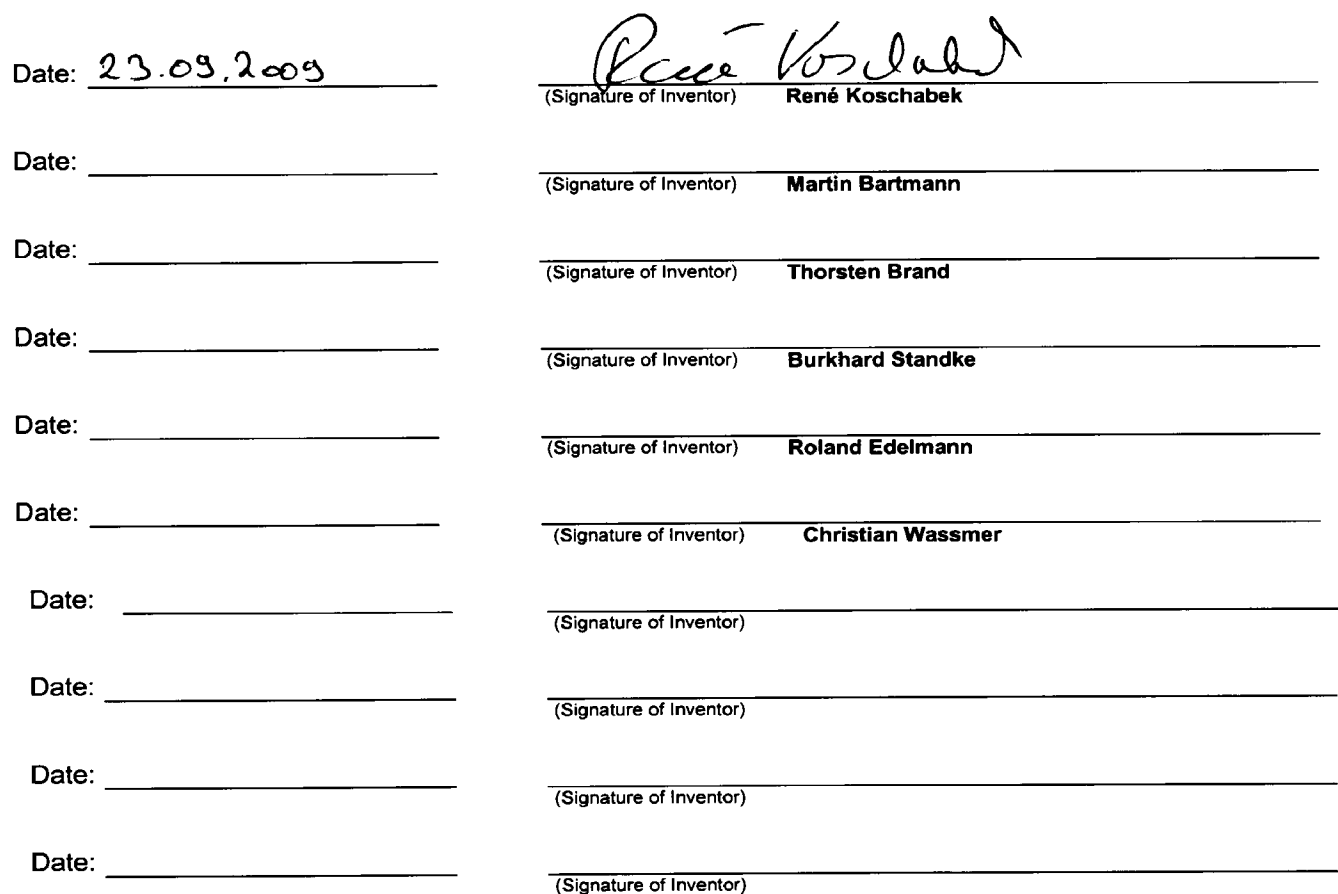 Date: 23.09.2009 René Koschabek
(Signature of Inventor) René Koschabek
Date:
(Signature of Inventor) Martin Bartmann
Date:
(Signature of Inventor) Thorsten Brand
Date:
(Signature of Inventor) Burkhard Standke
Date:
(Signature of Inventor) Roland Edelmann
Date:
(Signature of Inventor) Christian Wassmer
Date:
(Signature of Inventor)
Date:
(Signature of Inventor)
Date:
(Signature of Inventor)
Date:
(Signature of Inventor)